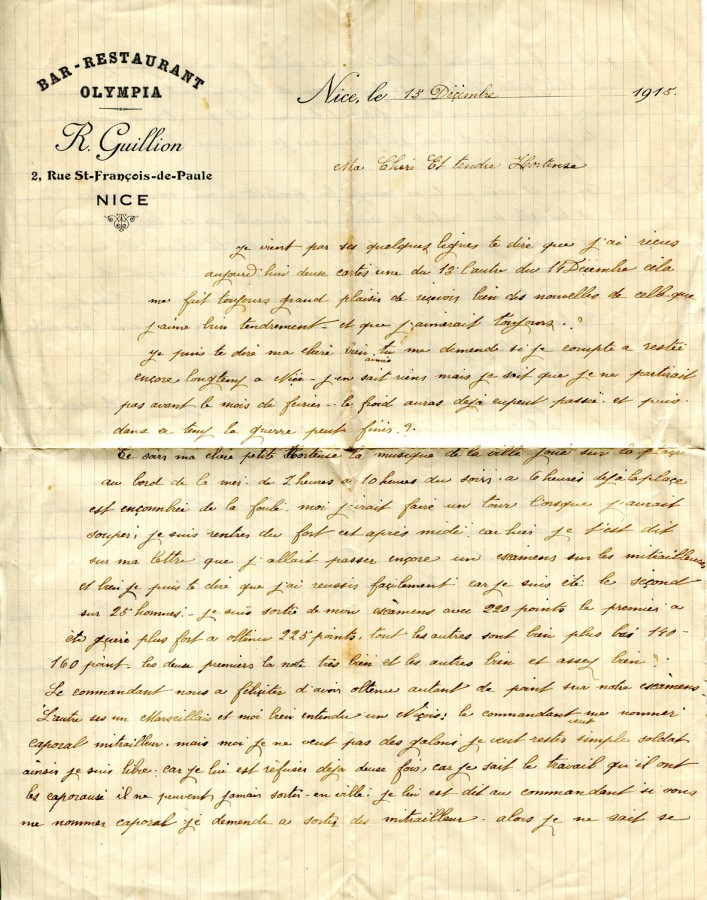 BAR-RESTAURANT
OLYMPIA
R. Guillion
2, Rue St-François-de-Paule
NICE
Nice, le 15 Décembre 1915.
Ma Cheri Et tendre Hortense
je vient par ses quelques lignes te dire que j'ai recus
aujourd'hui deuse cartes une du 12 l'autre du 14 Décembre céla
me fait toujours grand plaisir de reçevoir bien des nouvelles de celle que
j'aime bien tendrement - et que j'aimerait toujours.?
je puis te dire ma chere bien aimée tu me demende si je compte a restée
ençore longtemp a Nice - j'en sait riens mais je sait que je ne partirait
pas avant le mois de fevrier - le froid auras deja enpeut passée. et puis
dans ce temp la guerre peut finis.?
Ce soirs ma chere petite Hortense la musique de la ville joue sur la place
au bord de la mer. de 2 heures a 10 heures du soirs. a 6 heures deja la place
est ençombrée de la foule. moi j'irait faire un tour lorsque j'aurait
souper, je suis rentrer du fort cet après midi. car hier je t'est dit
sur ma lettre que j'allait passer ençore un examens sur les mitrailleuses
et bien je puis te dire que j'ai reussis façilement car je suis été le seçond
sur 25 hommes. - je suis sortis de mon examens avec 220 points le premier a
été guere plus fort a obtenu 225 points, tout les autres sont bien plus bas 140-
160 point - les deuse premiers la note très bien et les autres bien et assez bien?
Le commandant nous a féliçiter d'avoir obtenue autant de point sur notre examens
L'autre ses un Marseillais et moi bien entendu un Niçois: le commandant me nommer
veut
caporal mitrailleur. mais moi je ne veut pas des galons je veut rester simple soldat
ainsis je suis libre. car je lui est refuser deja deuse fois, car je sait le travail qu'il ont
les caporause il ne peuvent jamais sortir - en ville. je lui est dit au commandant si vous
me nommer caporal. je demende a sortir des mitrailleur. alors je ne sait se